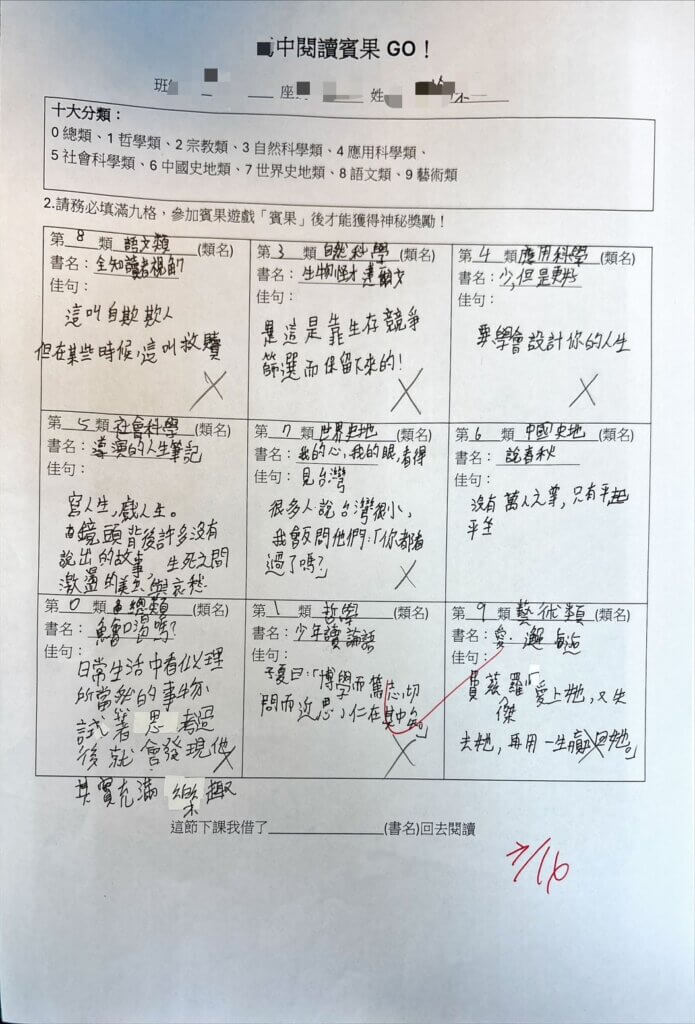 中閱讀賓果 GO！
班 座 姓
十大分類：
0 總類、1 哲學類、2 宗教類、3 自然科學類、4 應用科學類、
5 社會科學類、6 中國史地類、7 世界史地類、8 語文類、9 藝術類
2.請務必填滿九格，參加賓果遊戲「賓果」後才能獲得神秘獎勵！
第 8 類 語文類 (類名)
書名：全知讀者視角7
佳句：
這叫自欺欺人
但在某些時候，這叫救贖
第 3 類 自然科學 (類名)
書名：生物怪才達爾文
佳句：
是這是靠生存競爭
篩選而保留下來的！
第 4 類 應用科學 (類名)
書名：少，但是更好
佳句：
要學會設計你的人生
第 5 類 社會科學 (類名)
書名：導演的人生筆記
佳句：
寫人生，戲人生。
鏡頭背後許多沒有
說出的故事 生死之間
激盪的美與哀愁
第 7 類 世界史地 (類名)
書名：我的心，我的眼，看得
佳句：見台灣
很多人說台灣很小，
我會反問他們：「你都看
過了嗎？」
第 6 類 中國史地 (類名)
書名：說春秋
佳句：
沒有萬人之輩，只有平起
平坐
第 0 類 總類 (類名)
書名：魚會口渴嗎？
佳句：
日常生活中看似理
所當然的事物
試著思考過
後就會發現他
其實充滿樂趣
第 1 類 哲學 (類名)
書名：少年讀論語
佳句：
子夏曰：「博學而篤志，切
問而近思，仁在其中矣」
第 9 類 藝術類 (類名)
書名：愛．邂逅
佳句：
費茲羅傑「愛上她，又失
去她，再用一生贏回她。」
這節下課我借了 (書名)回去閱讀
7/16